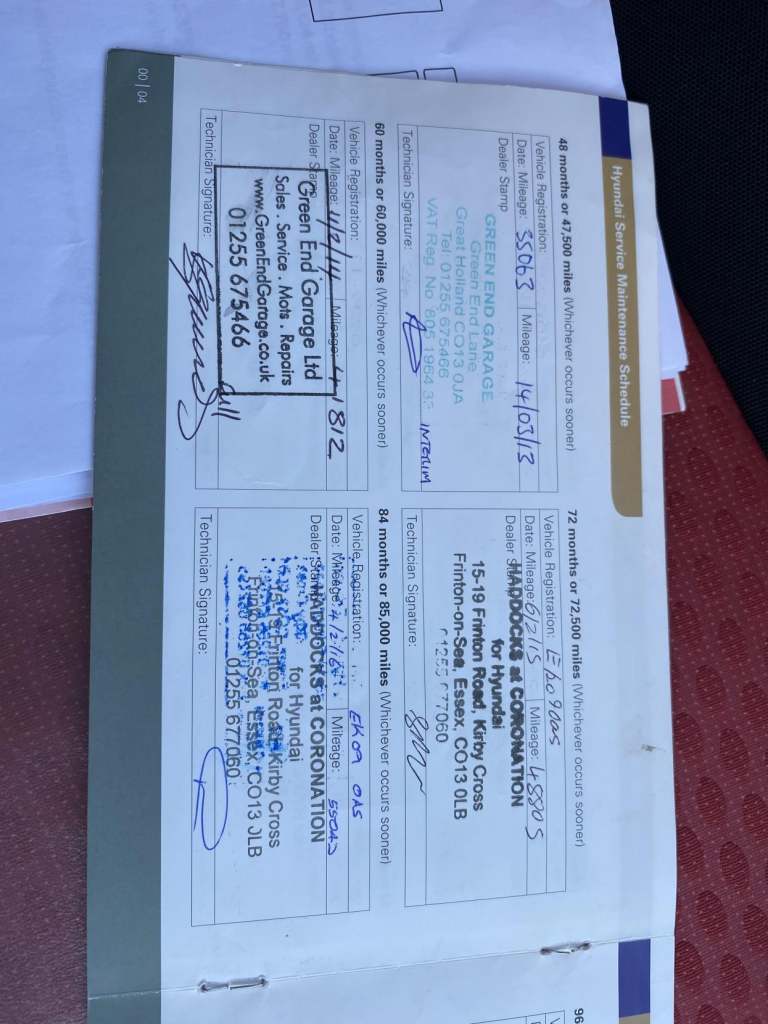 Hyundai Service Maintenance Schedule
48 months or 47,500 miles (Whichever occurs sooner)
Vehicle Registration:
Date: Mileage: 35063 Mileage: 14/03/13
Dealer Stamp
GREEN END GARAGE
Green End Lane
Great Holland CO13 0JA
Tel: 01255 675466
VAT Reg No 805 1964 3
INTERIM
Technician Signature:
60 months or 60,000 miles (Whichever occurs sooner)
Vehicle Registration:
Date: Mileage: Mileage: 41812
Dealer Stamp
Green End Garage Ltd
Sales . Service . Mots . Repairs
www.GreenEndGarage.co.uk
01255 675466
full
Technician Signature:
72 months or 72,500 miles (Whichever occurs sooner)
Vehicle Registration:
Date: Mileage: 6/2/15 Mileage: 48805
Dealer Stamp
HADDOCKS at CORONATION
for Hyundai
15-19 Frinton Road, Kirby Cross
Frinton-on-Sea, Essex, CO13 0LB
01255 677060
Technician Signature:
84 months or 85,000 miles (Whichever occurs sooner)
Vehicle Registration: EK09 OAS
Date: Mileage: 4/2/16 Mileage:
Dealer Stamp
HADDOCKS at CORONATION
for Hyundai
Frinton Road, Kirby Cross
Frinton-on-Sea, Essex, CO13 0LB
01255 677060
Technician Signature:
00 | 04
96